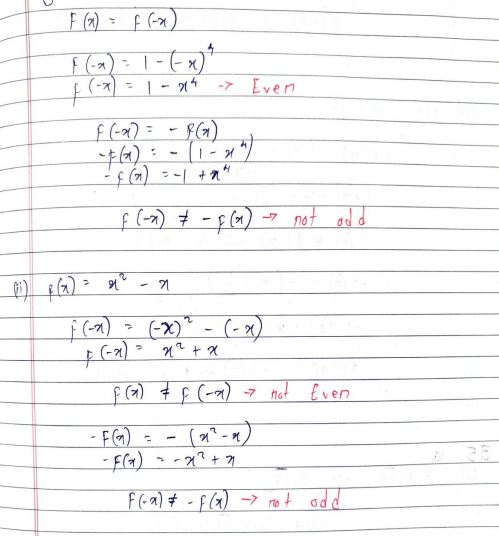 f(x) = f(-x)
f(-x) = 1 - (-x)⁴
f(-x) = 1 - x⁴ → Even
f(-x) = - f(x)
-f(x) = - (1 - x⁴)
-f(x) = -1 + x⁴
f(-x) ≠ - f(x) → not odd
(ii) f(x) = x² - x
f(-x) = (-x)² - (-x)
f(-x) = x² + x
f(x) ≠ f(-x) → not Even
-f(x) = - (x² - x)
-f(x) = -x² + x
f(-x) ≠ - f(x) → not odd